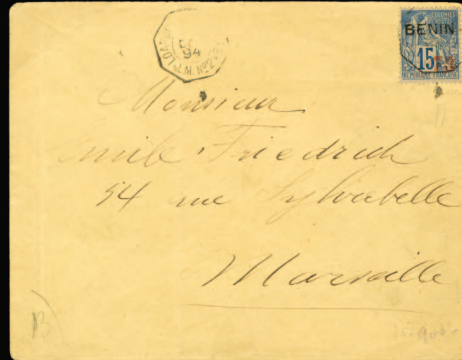 94
BENIN
15
Monsieur
Emile Friedrich
54 rue Sylvabelle
Marseille